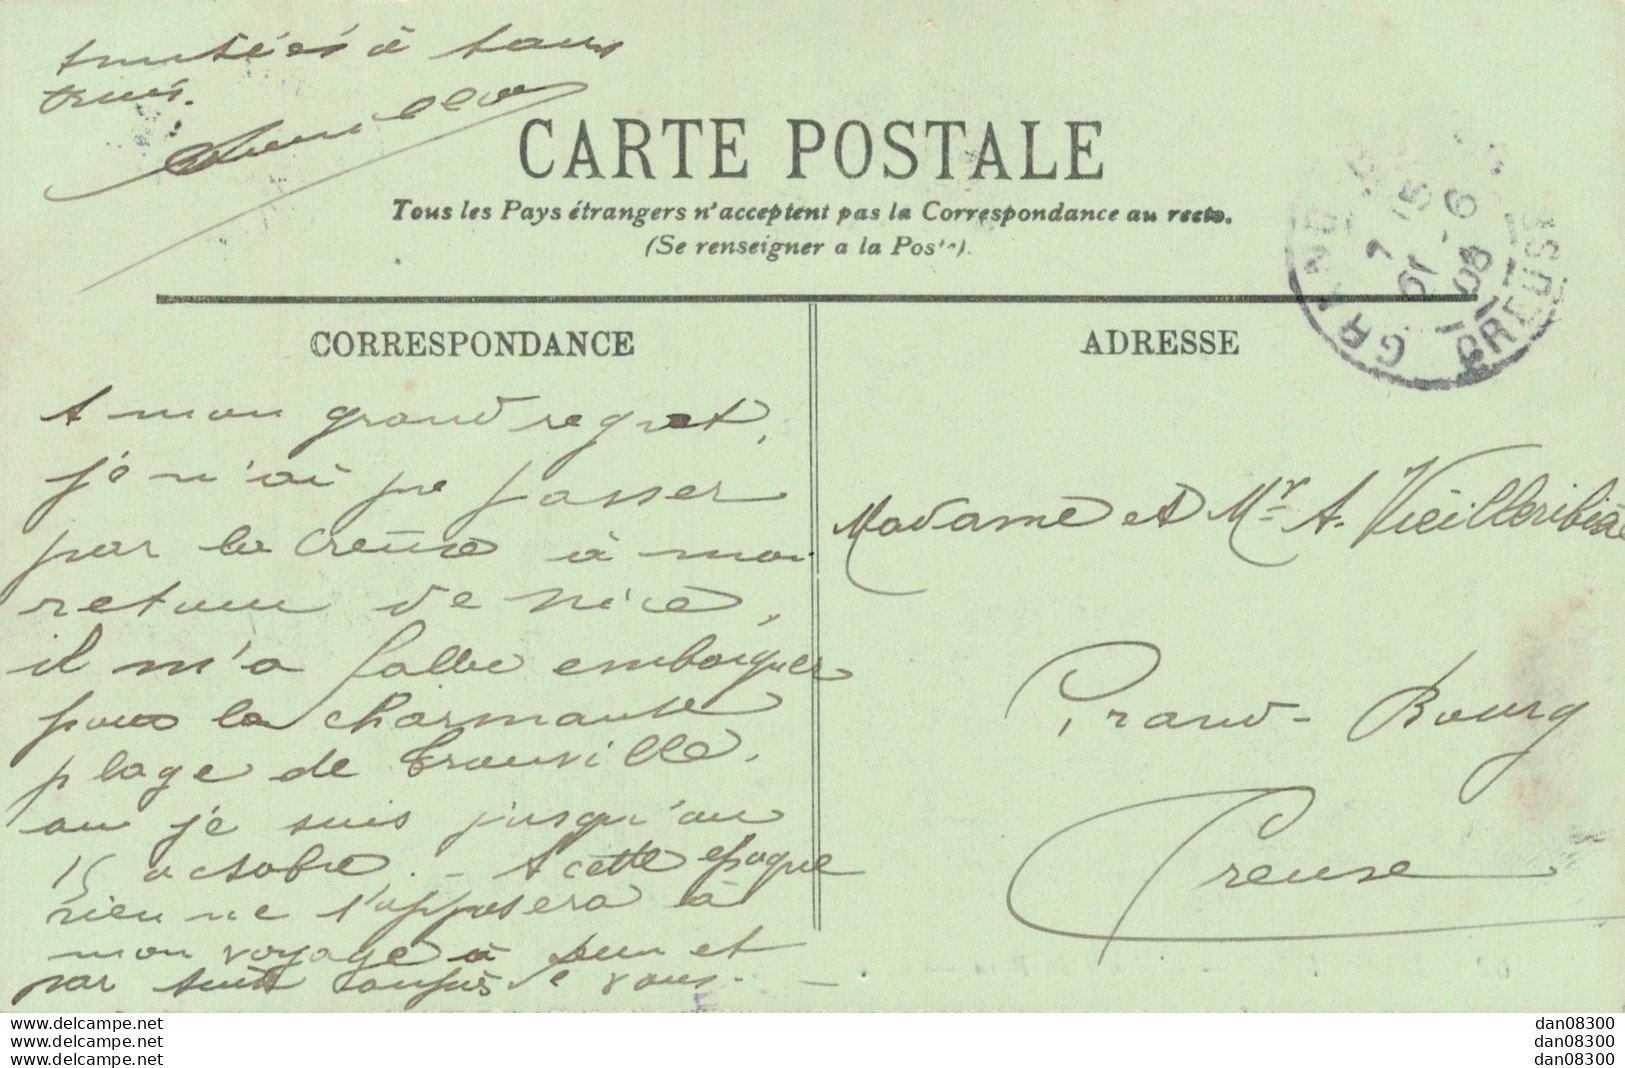 Amitiés à tous
trois.
CARTE POSTALE
Tous les Pays étrangers n'acceptent pas la Correspondance au recto.
(Se renseigner a la Poste).
GRAND BOURG
7 15
16 -6
08
CREUSE
CORRESPONDANCE
ADRESSE
A mon grand regret,
je n'ai pu passer
par la Creuse à mon
retour de Nice,
il m'a fallu embarquer
pour la charmante
plage de Trouville.
ou je suis jusqu'au
15 octobre. - A cette époque
rien ne s'opposera à
mon voyage à Dun et
par suite auprès de vous. -
Madame et Mr A. Vieilleribière
Grand-Bourg
Creuse
www.delcampe.net
www.delcampe.net
www.delcampe.net
dan08300
dan08300
dan08300